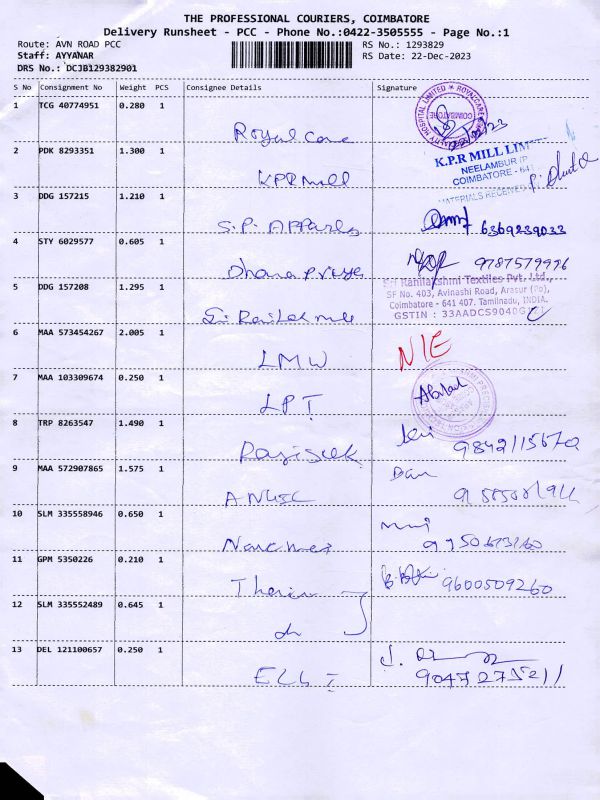 THE PROFESSIONAL COURIERS, COIMBATORE
Delivery Runsheet - PCC - Phone No.:0422-3505555 - Page No.:1
Route: AVN ROAD PCC
RS No.: 1293829
Staff: AYYANAR
RS Date: 22-Dec-2023
DRS No.: DCJB129382901
S No Consignment No Weight PCS Consignee Details Signature
1 TCG 40774951 0.280 1
Royal Care
2 PDK 8293351 1.300 1
KPR Mill
K.P.R MILL
NEELAMBUR
COIMBATORE - 641
MATERIALS RECEIVED
3 DDG 157215 1.210 1
S.P. APParels 6369239033
4 STY 6029577 0.605 1
Dhana Priya 9787579996
5 DDG 157208 1.295 1
Sri Ranilakshmi Textiles Pvt. Ltd.,
SF No. 403, Avinashi Road, Arasur (Po),
Coimbatore - 641 407. Tamilnadu, INDIA.
GSTIN : 33AADCS9040G
6 MAA 573454267 2.005 1
LMW N/E
7 MAA 103309674 0.250 1
LPT
8 TRP 8263547 1.490 1
9 MAA 572907865 1.575 1
10 SLM 335558946 0.650 1
11 GPM 5350226 0.210 1
9600509260
12 SLM 335552489 0.645 1
13 DEL 121100657 0.250 1
9047275211